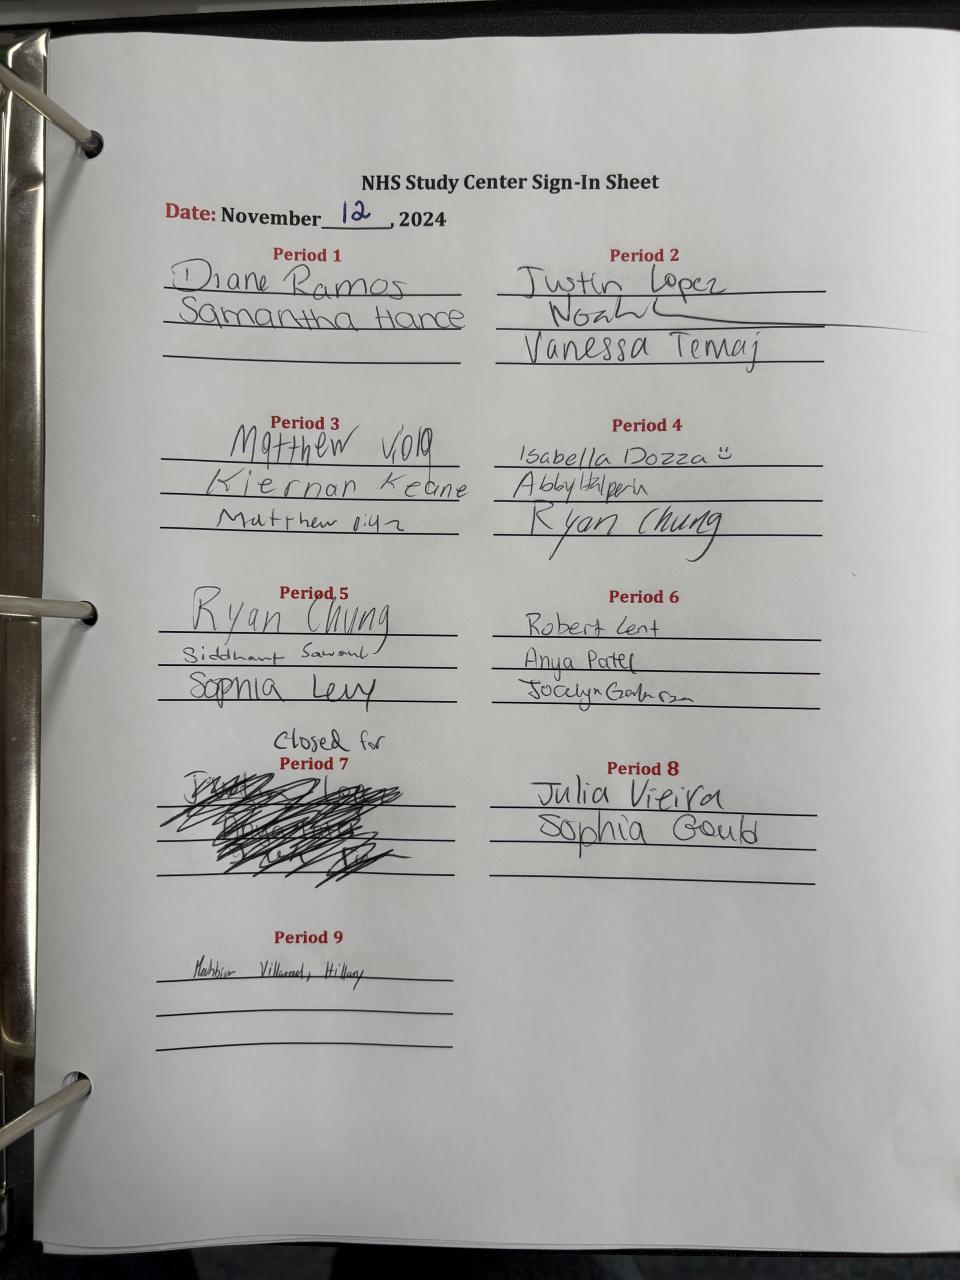 NHS Study Center Sign-In Sheet
Date: November 12, 2024
Period 1
Diane Ramos
Samantha Hance
Period 2
Justin Lopez
Noah L
Vanessa Temaj
Period 3
Matthew Viola
Kiernan Keane
Matthew
Period 4
Isabella Dozza
Abby Halperin
Ryan Chung
Period 5
Ryan Chung
Siddhant Sawant
Sophia Levy
Period 6
Robert Lent
Anya Patel
Jocelyn
closed for
Period 7
Period 8
Julia Vieira
Sophia Gould
Period 9
Hillary